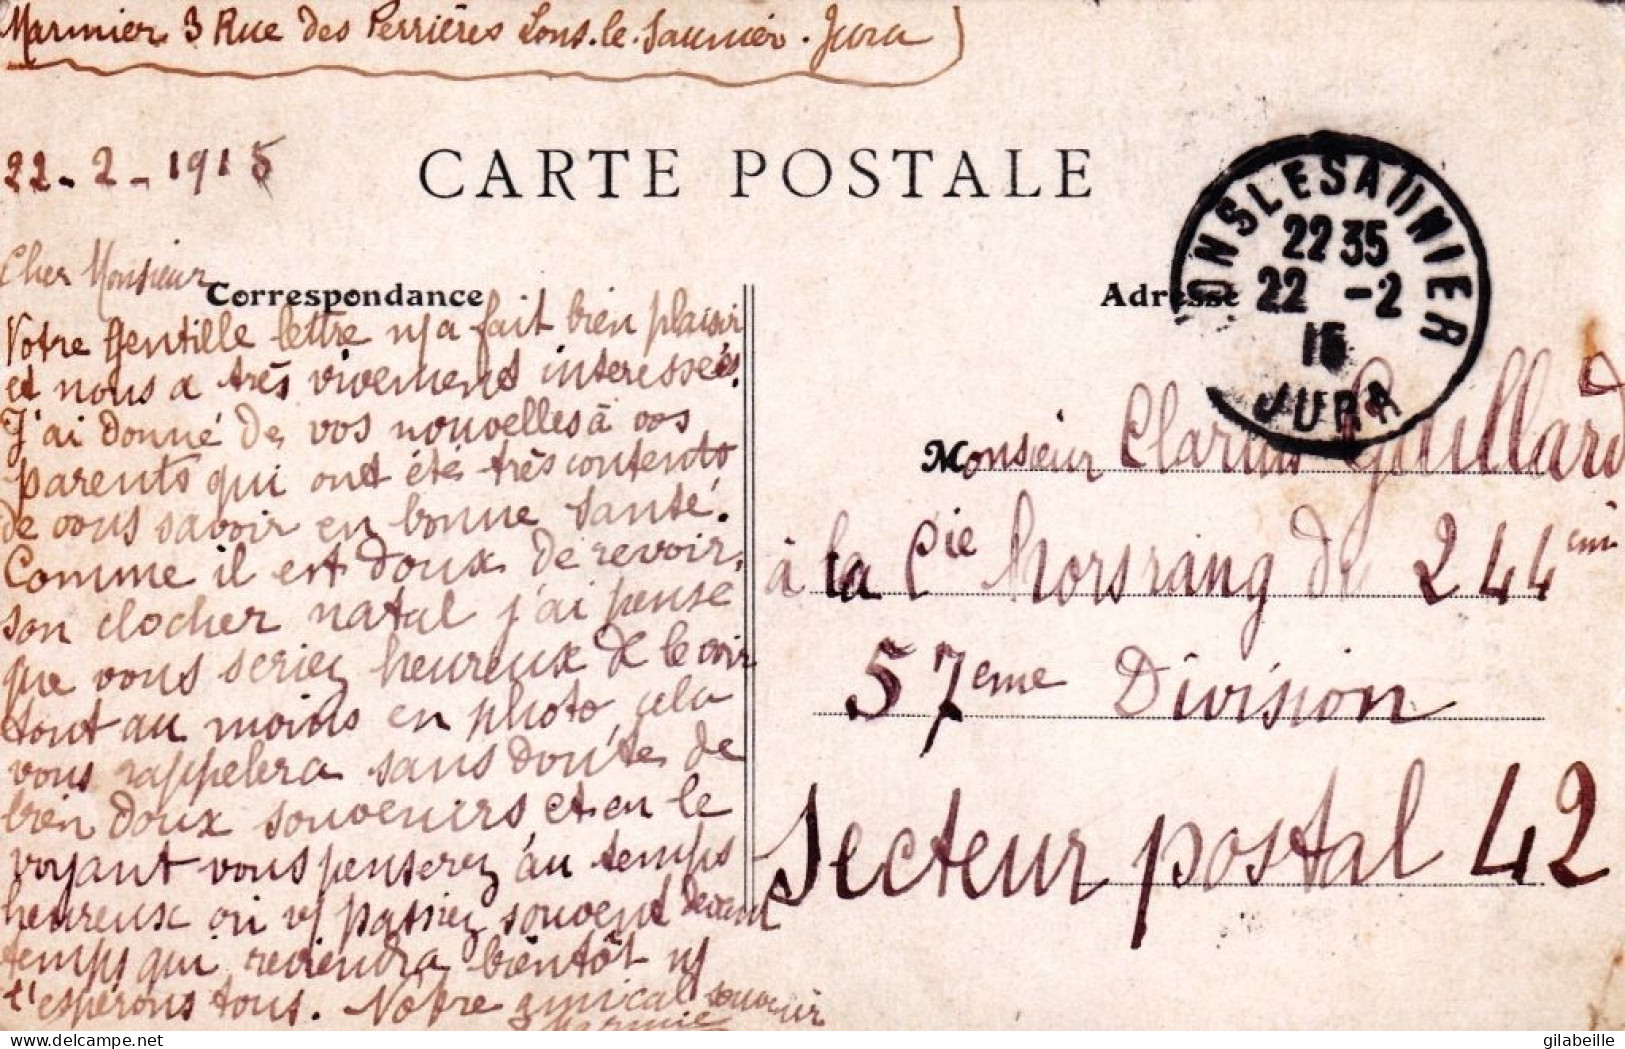 Marmier 3 Rue des Perrières Lons-le-Saunier. Jura
22-2-1915
CARTE POSTALE
Cher Monsieur
Correspondance
Votre gentille lettre n/ a fait bien plaisir
et nous a très vivement interessés.
J'ai donné de vos nouvelles à vos
parents qui ont été très contents
de vous savoir en bonne santé.
Comme il est doux de revoir
son clocher natal j'ai pensé
que vous seriez heureux de le voir
tout au moins en photo, cela
vous rappelera sans doute de
bien doux souvenirs et en le
voyant vous penserez au temps
heureux où v/ passiez souvent devant
temps qui reviendra bientôt n/
l'espérons tous. Notre amical souvenir
Marmier
ONS LE SAUNIER
22 35
22 -2
15
JURA
Adresse
Monsieur Gaillard
à la Cie Hors rang du 244em
57eme Division
Secteur postal 42
gilabeille